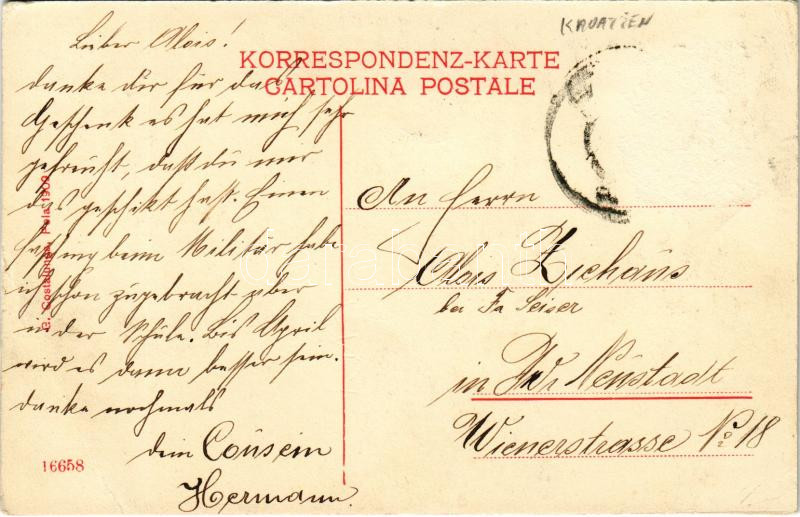 KROATIEN
KORRESPONDENZ-KARTE
CARTOLINA POSTALE
Lieber Alois!
danke dir für das
Geschenk es hat mich sehr
gefreuht, daß du mir
das geschikt hast. Einen
fasching beim Militär habe
ich schon zugebracht aber
in der Schule. Bis April
wird es dann besser sein.
danke nochmals
dein Cousein
Hermann.
An Herrn
Alois
bei Fa Seiser
in Wr. Neustadt
Wienerstrasse No 18
G. Costalunga, Pola 1909
16658
darabanth